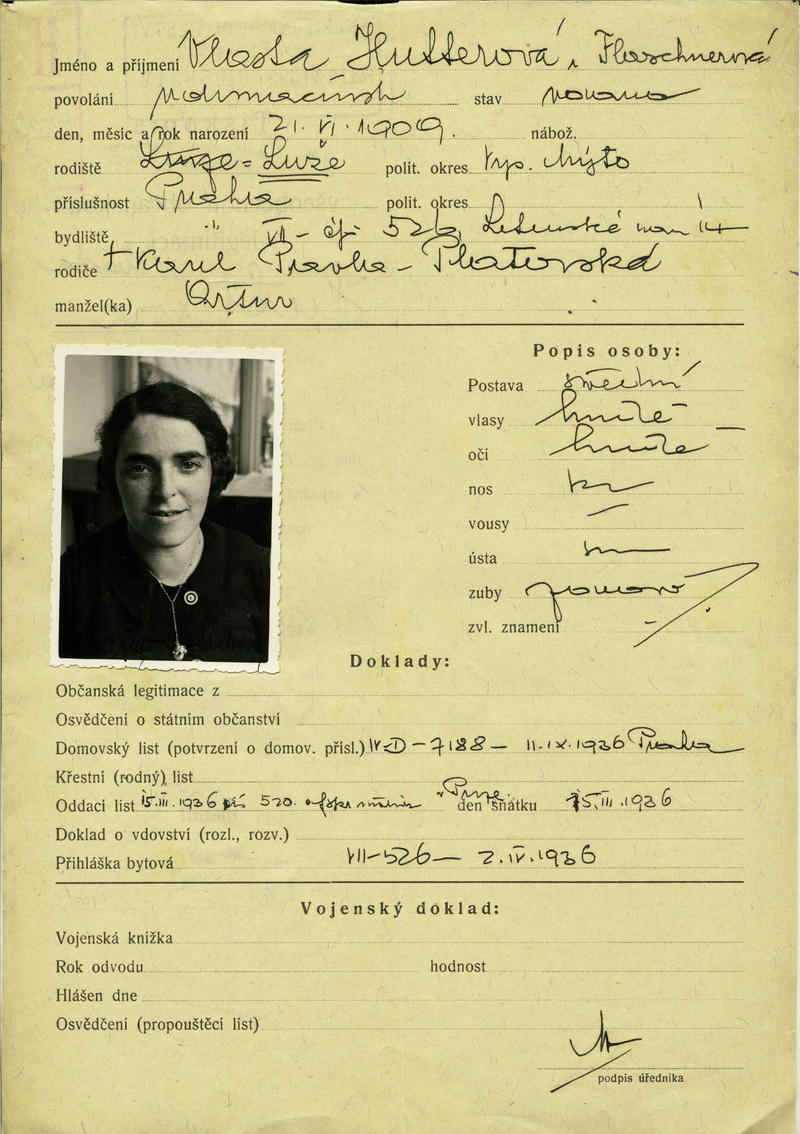 Jméno a příjmení Vlasta Hutterová r. Flaschnerová
povolání stav
den, měsíc a rok narození 21. VI. 1909. nábož.
rodiště Luže = Luže polit. okres Vys. Mýto
příslušnost Praha polit. okres
bydliště VII - čp. 526, Letenské nám 14
rodiče + Karel Pavla - Platovská
manžel(ka) Artur
Popis osoby:
Postava střední
vlasy hnědé
oči hnědé
nos
vousy —
ústa
zuby
zvl. znamení
Doklady:
Občanská legitimace z
Osvědčení o státním občanství
Domovský list (potvrzení o domov. přísl.) IV-D - 7188 - 11.IX.1936 Praha
Křestní (rodný) list
Oddací list 15. III. 1936 520. v Praze den sňatku 15. III. 1936
Doklad o vdovství (rozl., rozv.)
Přihláška bytová VII-526 — 2. IV. 1936
Vojenský doklad:
Vojenská knížka
Rok odvodu hodnost
Hlášen dne
Osvědčení (propouštěcí list)
podpis úředníka